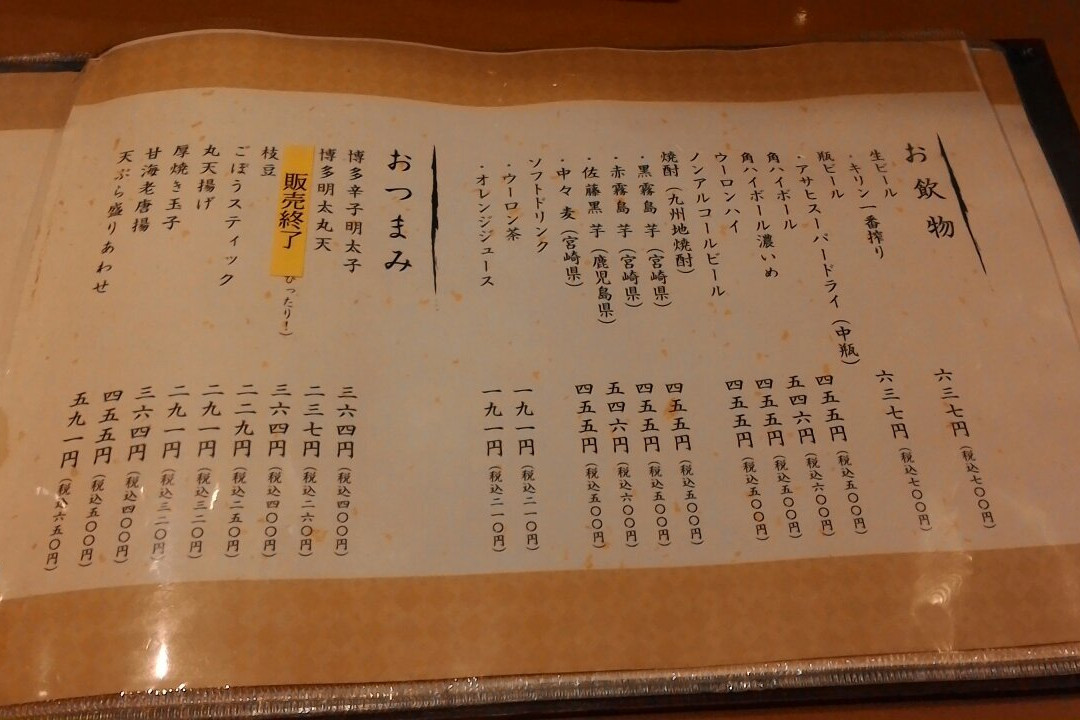 お飲物
生ビール
・キリン一番搾り 六三七円（税込七〇〇円）
瓶ビール
・アサヒスーパードライ（中瓶） 六三七円（税込七〇〇円）
角ハイボール 四五五円（税込五〇〇円）
角ハイボール濃いめ 五四六円（税込六〇〇円）
ウーロンハイ 四五五円（税込五〇〇円）
ノンアルコールビール 四五五円（税込五〇〇円）
焼酎（九州地焼酎）
・黒霧島 芋（宮崎県） 四五五円（税込五〇〇円）
・赤霧島 芋（宮崎県） 四五五円（税込五〇〇円）
・佐藤黒 芋（鹿児島県） 五四六円（税込六〇〇円）
・中々 麦（宮崎県） 四五五円（税込五〇〇円）
ソフトドリンク
・ウーロン茶 一九一円（税込二一〇円）
・オレンジジュース 一九一円（税込二一〇円）
おつまみ
博多辛子明太子 三六四円（税込四〇〇円）
博多明太丸天 二三七円（税込二六〇円）
販売終了 ぴったり！） 三六四円（税込四〇〇円）
枝豆 二二九円（税込二五〇円）
ごぼうスティック 二九一円（税込三二〇円）
丸天揚げ 二九一円（税込三二〇円）
厚焼き玉子 三六四円（税込四〇〇円）
甘海老唐揚 四五五円（税込五〇〇円）
天ぷら盛りあわせ 五九一円（税込六五〇円）